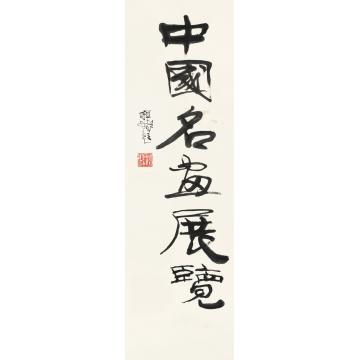 中國名畫展覽